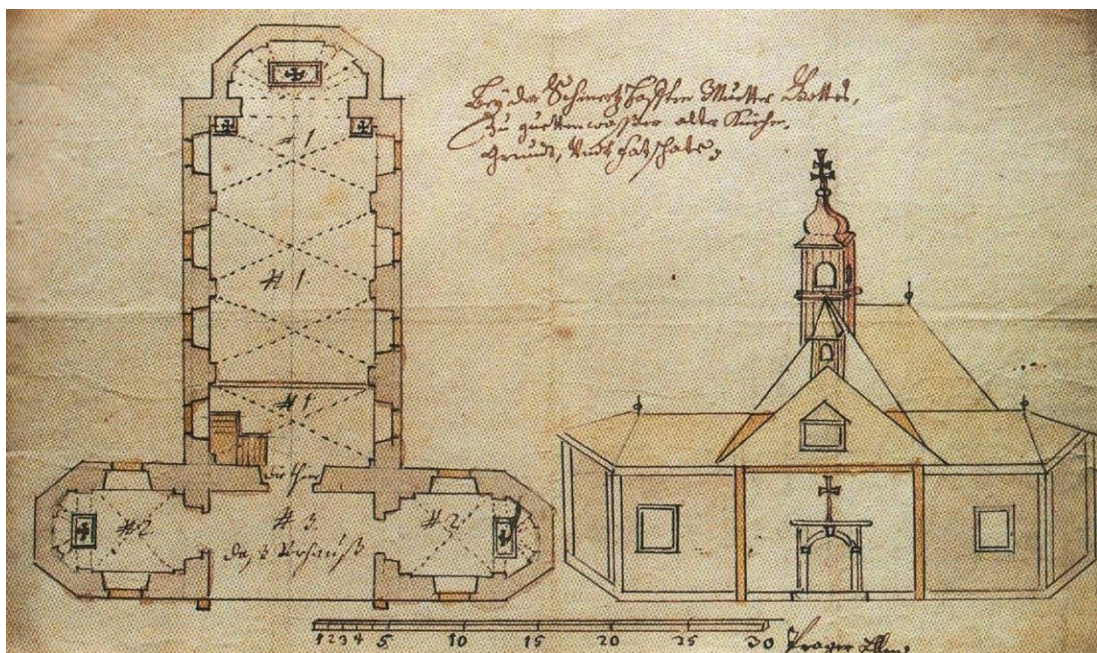 Bey der Schmertzhafften Mutter Gottes,
Zu quettenwasser alte Kirchen
Grundt, Undt
# 1
# 1
# 1
die thür
# 2
# 3
# 2
das Vorhauß
1 2 3 4 5 10 15 20 25 30 Prager Ellen